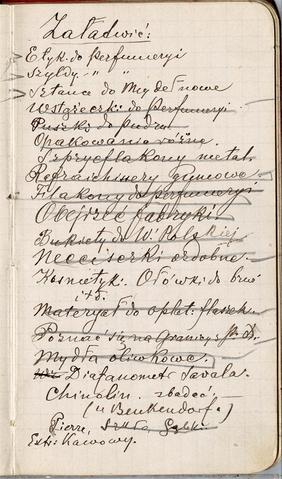 Załadwić:
Etyk. do perfumeryi
Szyldy " "
Sztance do Mydeł nowe
Wstążeczki do perfumeryi.
Puszki do pudru.
Opakowania różne.
Szprycflakony metal.
Refraichinery gumowe
Flakony do perfumeryi
Obejrzeć fabryki.
Bukiety do W.
Neceserki ozdobne.
Kosmetyki. Ołówki do brwi
itd.
Materyał do opłat. flaszek.
Poznać się na
Mydła oliwkowe.
Diafanometr Savala.
Chinolin. zbadać
(u Benkendorfa)
Pierre,
Estr. Kawowy.